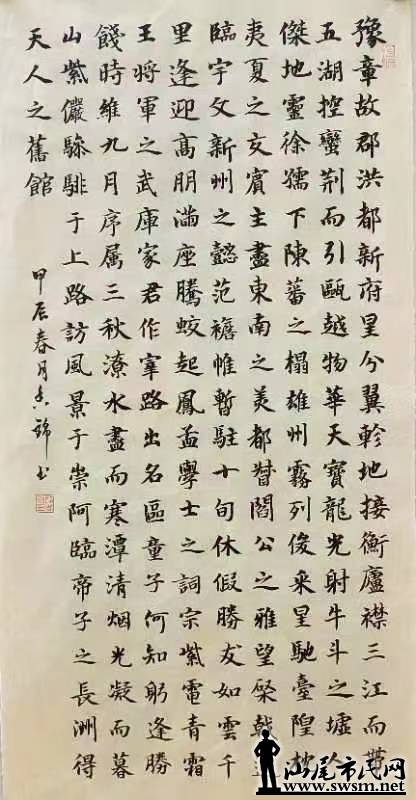 豫章故郡洪都新府星分翼軫地接衡廬襟三江而帶
五湖控蠻荆而引甌越物華天寶龍光射牛斗之墟人
傑地靈徐孺下陳蕃之榻雄州霧列俊采星馳臺隍枕
夷夏之交賓主盡東南之美都督閻公之雅望棨戟
臨宇文新州之懿范襜帷暫駐十旬休假勝友如雲千
里逢迎高朋滿座騰蛟起鳳孟學士之詞宗紫電青霜
王將軍之武庫家君作宰路出名區童子何知躬逢勝
餞時維九月序属三秋潦水盡而寒潭清烟光凝而暮
山紫儼驂騑于上路訪風景于崇阿臨帝子之長洲得
天人之舊館
甲辰春月錦书
汕尾市民网
www.swsm.net